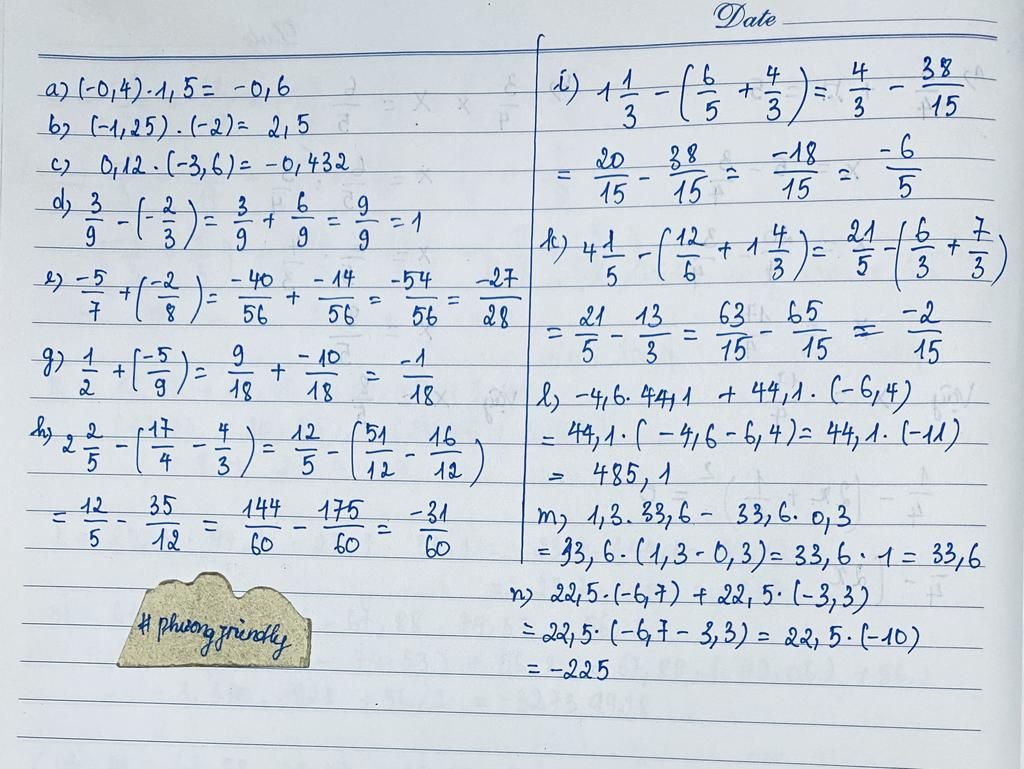 Date
a) (-0,4).1,5 = -0,6
b) (-1,25).(-2) = 2,5
c) 0,12.(-3,6) = -0,432
d) 3/9 - (-2/3) = 3/9 + 6/9 = 9/9 = 1
e) -5/7 + (-2/8) = -40/56 + -14/56 = -54/56 = -27/28
g) 1/2 + (-5/9) = 9/18 + -10/18 = -1/18
h) 2 2/5 - (17/4 - 4/3) = 12/5 - (51/12 - 16/12)
= 12/5 - 35/12 = 144/60 - 175/60 = -31/60
#phuongfriendly
i) 1 1/3 - (6/5 + 4/3) = 4/3 - 38/15
= 20/15 - 38/15 = -18/15 = -6/5
k) 4 1/5 - (12/6 + 1 4/3) = 21/5 - (6/3 + 7/3)
= 21/5 - 13/3 = 63/15 - 65/15 = -2/15
l) -4,6.44,1 + 44,1.(-6,4)
= 44,1.(-4,6-6,4) = 44,1.(-11)
= 485,1
m) 1,3.33,6 - 33,6.0,3
= 33,6.(1,3-0,3) = 33,6.1 = 33,6
n) 22,5.(-6,7) + 22,5.(-3,3)
= 22,5.(-6,7-3,3) = 22,5.(-10)
= -225